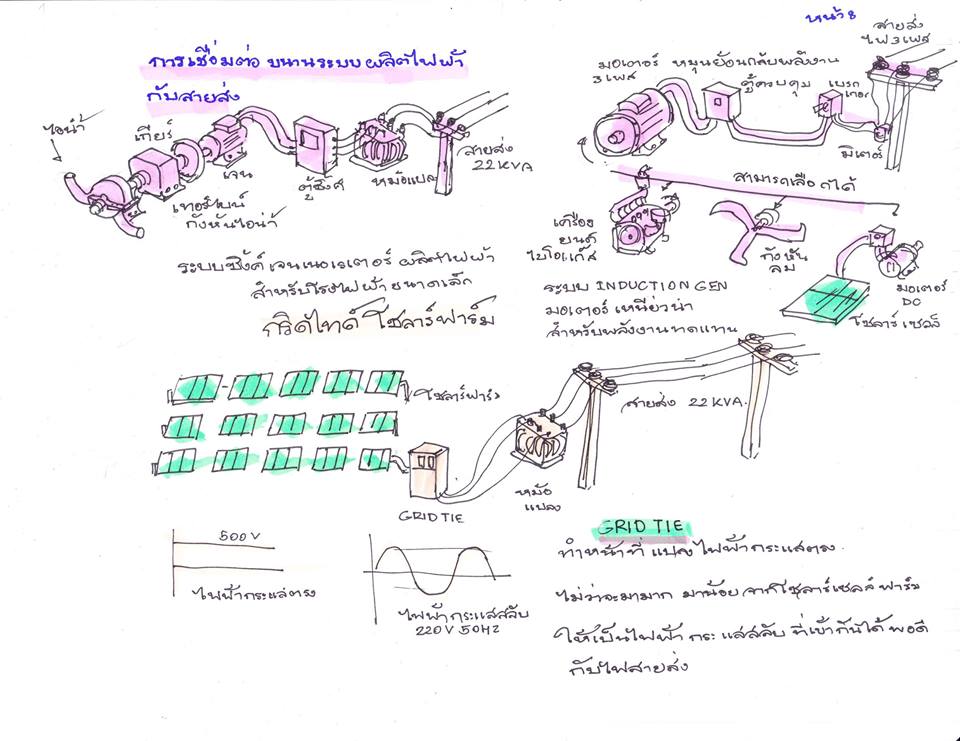 หน้า 8
การเชื่อมต่อ ขนานระบบ ผลิตไฟฟ้า
กับสายส่ง
ไอน้ำ
เกียร์
เจน
ตู้ซิ้งค์
หม้อแปลง
สายส่ง
22 KVA
เทอร์ไบน์
กังหันไอน้ำ
ระบบซิ้งค์ เจนเนอเรเตอร์ ผลิตไฟฟ้า
สำหรับโรงไฟฟ้า ขนาดเล็ก
มอเตอร์ หมุนย้อนกลับพลังงาน
3 เฟส
ตู้ควบคุม
เบรก
เกอร์
สายส่ง
ไฟ 3 เฟส
มิเตอร์
สามารถเลือกได้
เครื่อง
ยนต์
ไบโอแก๊ส
กังหัน
ลม
มอเตอร์
DC
โซลาร์เซลล์
ระบบ INDUCTION GEN
มอเตอร์ เหนี่ยวนำ
สำหรับพลังงานทดแทน
กริดไทด์ โซลาร์ฟาร์ม
โซลาร์ฟาร์ม
GRID TIE
หม้อ
แปลง
สายส่ง 22 KVA.
500 V
ไฟฟ้ากระแสตรง
ไฟฟ้ากระแสสลับ
220 V 50 HZ
GRID TIE
ทำหน้าที่ แปลงไฟฟ้ากระแสตรง.
ไม่ว่าจะมามาก มาน้อย จากโซลาร์เซลล์ ฟาร์ม
ให้เป็นไฟฟ้า กระแสสลับ ที่เข้ากันได้ พอดี
กับไฟสายส่ง